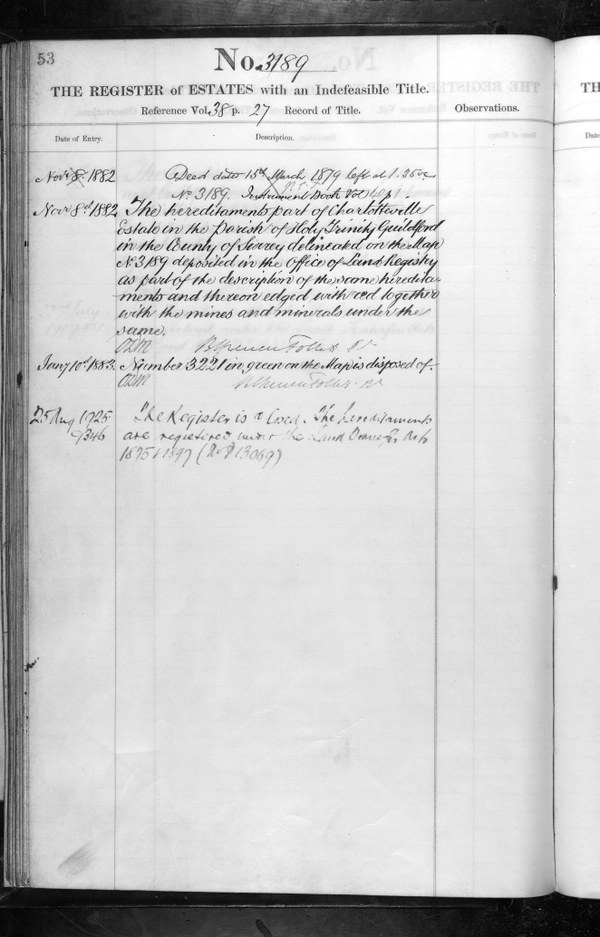 53
No. 3189
THE REGISTER of ESTATES with an Indefeasible Title.
Reference Vol. 38 p. 27 Record of Title.
Observations.
Date of Entry.
Description.
Novr 8 1882 Deed dated 15th March 1879 left at
No 3189. Instrument Book Vol p 1
Novr 8th 1882 The hereditaments part of Charlotteville
Estate in the Parish of Holy Trinity Guildford
in the County of Surrey delineated on the Map
No 3189 deposited in the Office of Land Registry
as part of the description of the same heredita-
ments and thereon edged with red together
with the mines and minerals under the
same.
Brenen Follett Rr
Jany 10th 1883. Number 3221 in green on the Map is disposed of.
Brenen Follett Rr
25 Aug 1925 The Register is Closed. The hereditaments
9346 are registered under the Land Transfer Acts
1875 & 1897 (No P 13069)
TH
Da